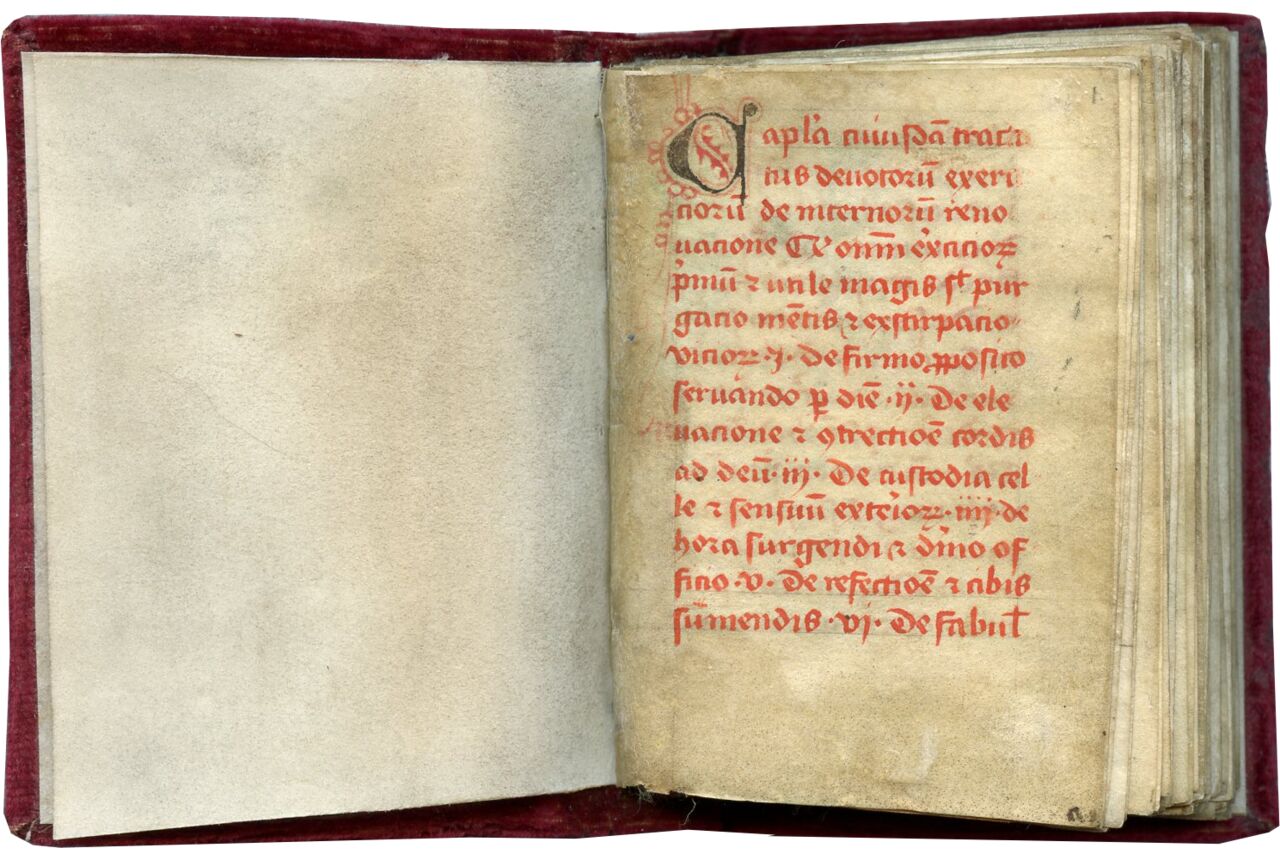 Capl'a cuiusdā trac
tus deuotorū exerci
ciorū de internorū reno
uacione Ex omniū exʼcicioꝝ
pʼmū ⁊ utile magis sʼt pur
gacio mētis ⁊ exstirpacio
vicioꝝ ·j· De firmo ꝓposito
seruando ꝑ diē ·ij· De ele
uacione ⁊ ꝯtrectioē cordis
ad deū ·iij· De custodia cel
le ⁊ sensuū exteʼioꝝ ·iiij· de
hora surgendi ⁊ dʼino of
ficio ·v· De refectioē ⁊ cibis
sūmendis ·vj· De fabulʼ